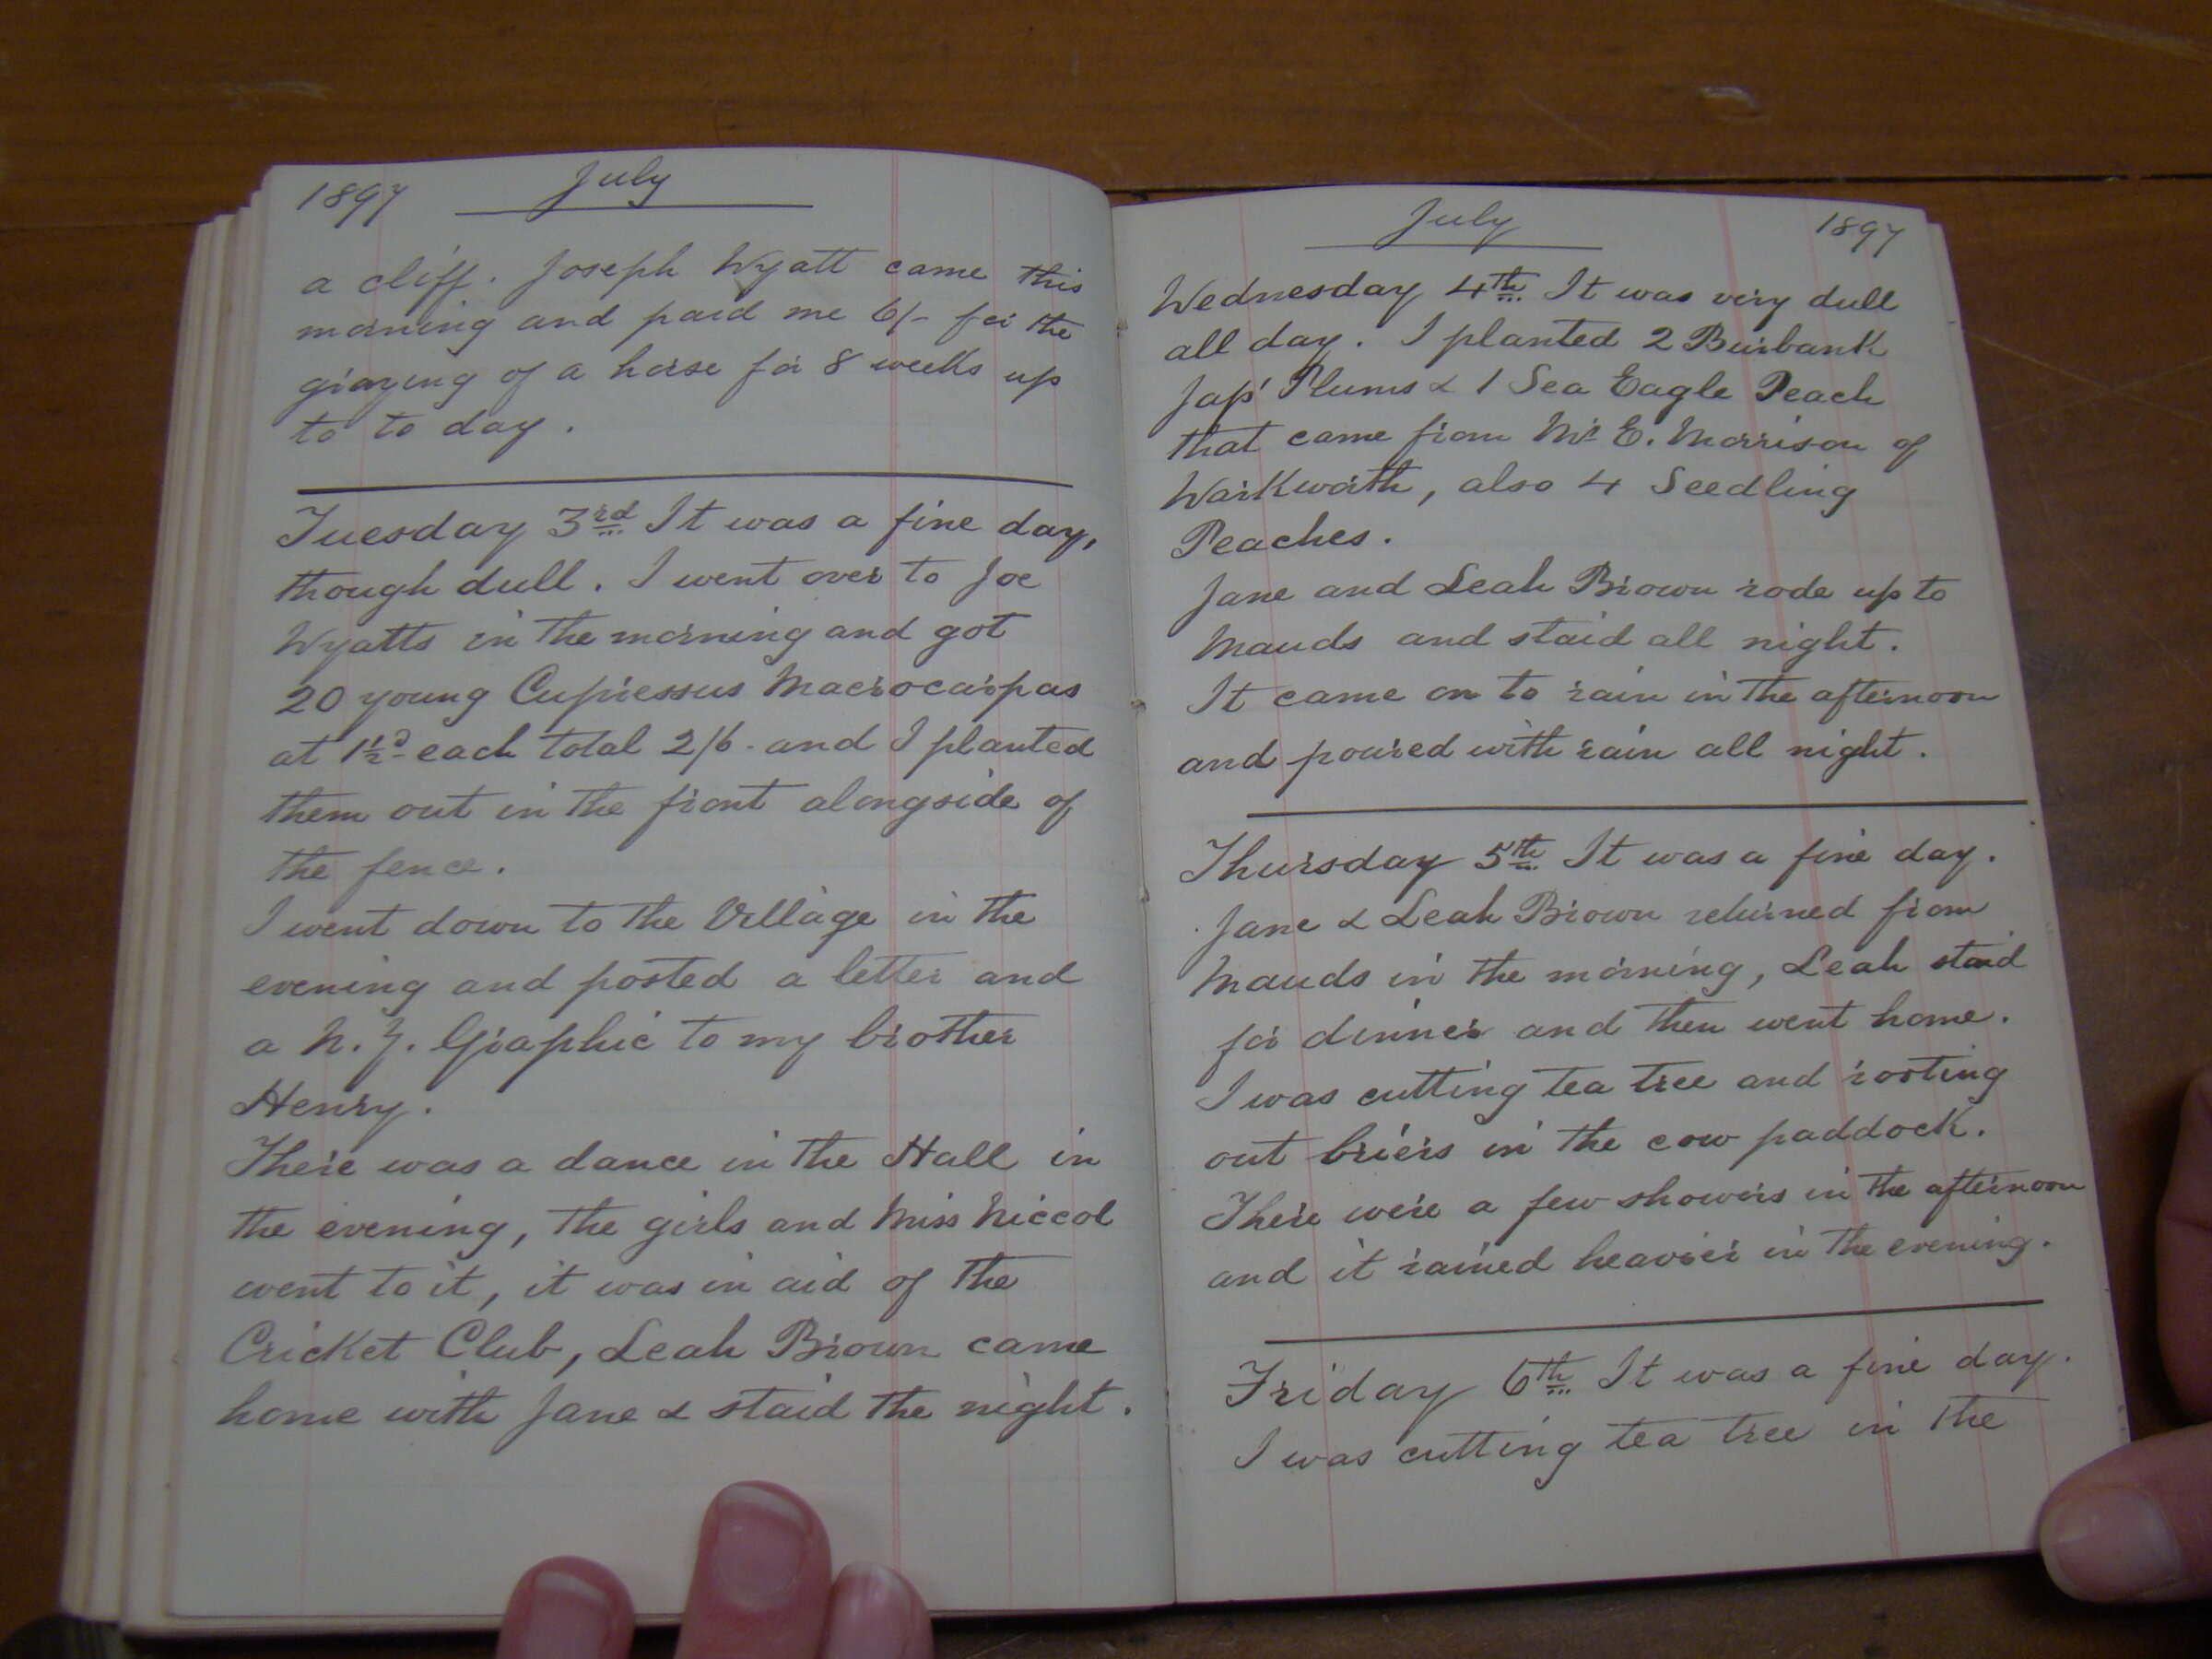 1897 July
a cliff. Joseph Wyatt came this
morning and paid me 6/- for the
grazing of a horse for 8 weeks up
to to day.
Tuesday 3rd It was a fine day,
though dull. I went over to Joe
Wyatts in the morning and got
20 young Cupressus Macrocarpas
at 1½d each total 2/6 - and I planted
them out in the front alongside of
the fence.
I went down to the Village in the
evening and posted a letter and
a N. Z. Graphic to my brother
Henry.
There was a dance in the Hall in
the evening, the girls and Miss Niccol
went to it, it was in aid of the
Cricket Club, Leah Brown came
home with Jane & staid the night.
July 1897
Wednesday 4th It was very dull
all day. I planted 2 Burbank
Jap' Plums & 1 Sea Eagle Peach
that came from Mr E. Morrison of
Warkworth, also 4 Seedling
Peaches.
Jane and Leah Brown rode up to
Mauds and staid all night.
It came on to rain in the afternoon
and poured with rain all night.
Thursday 5th It was a fine day.
Jane & Leah Brown returned from
Mauds in the morning, Leah staid
for dinner and then went home.
I was cutting tea tree and rooting
out briers in the cow paddock.
There were a few showers in the afternoon
and it rained heavier in the evening.
Friday 6th It was a fine day.
I was cutting tea tree in the